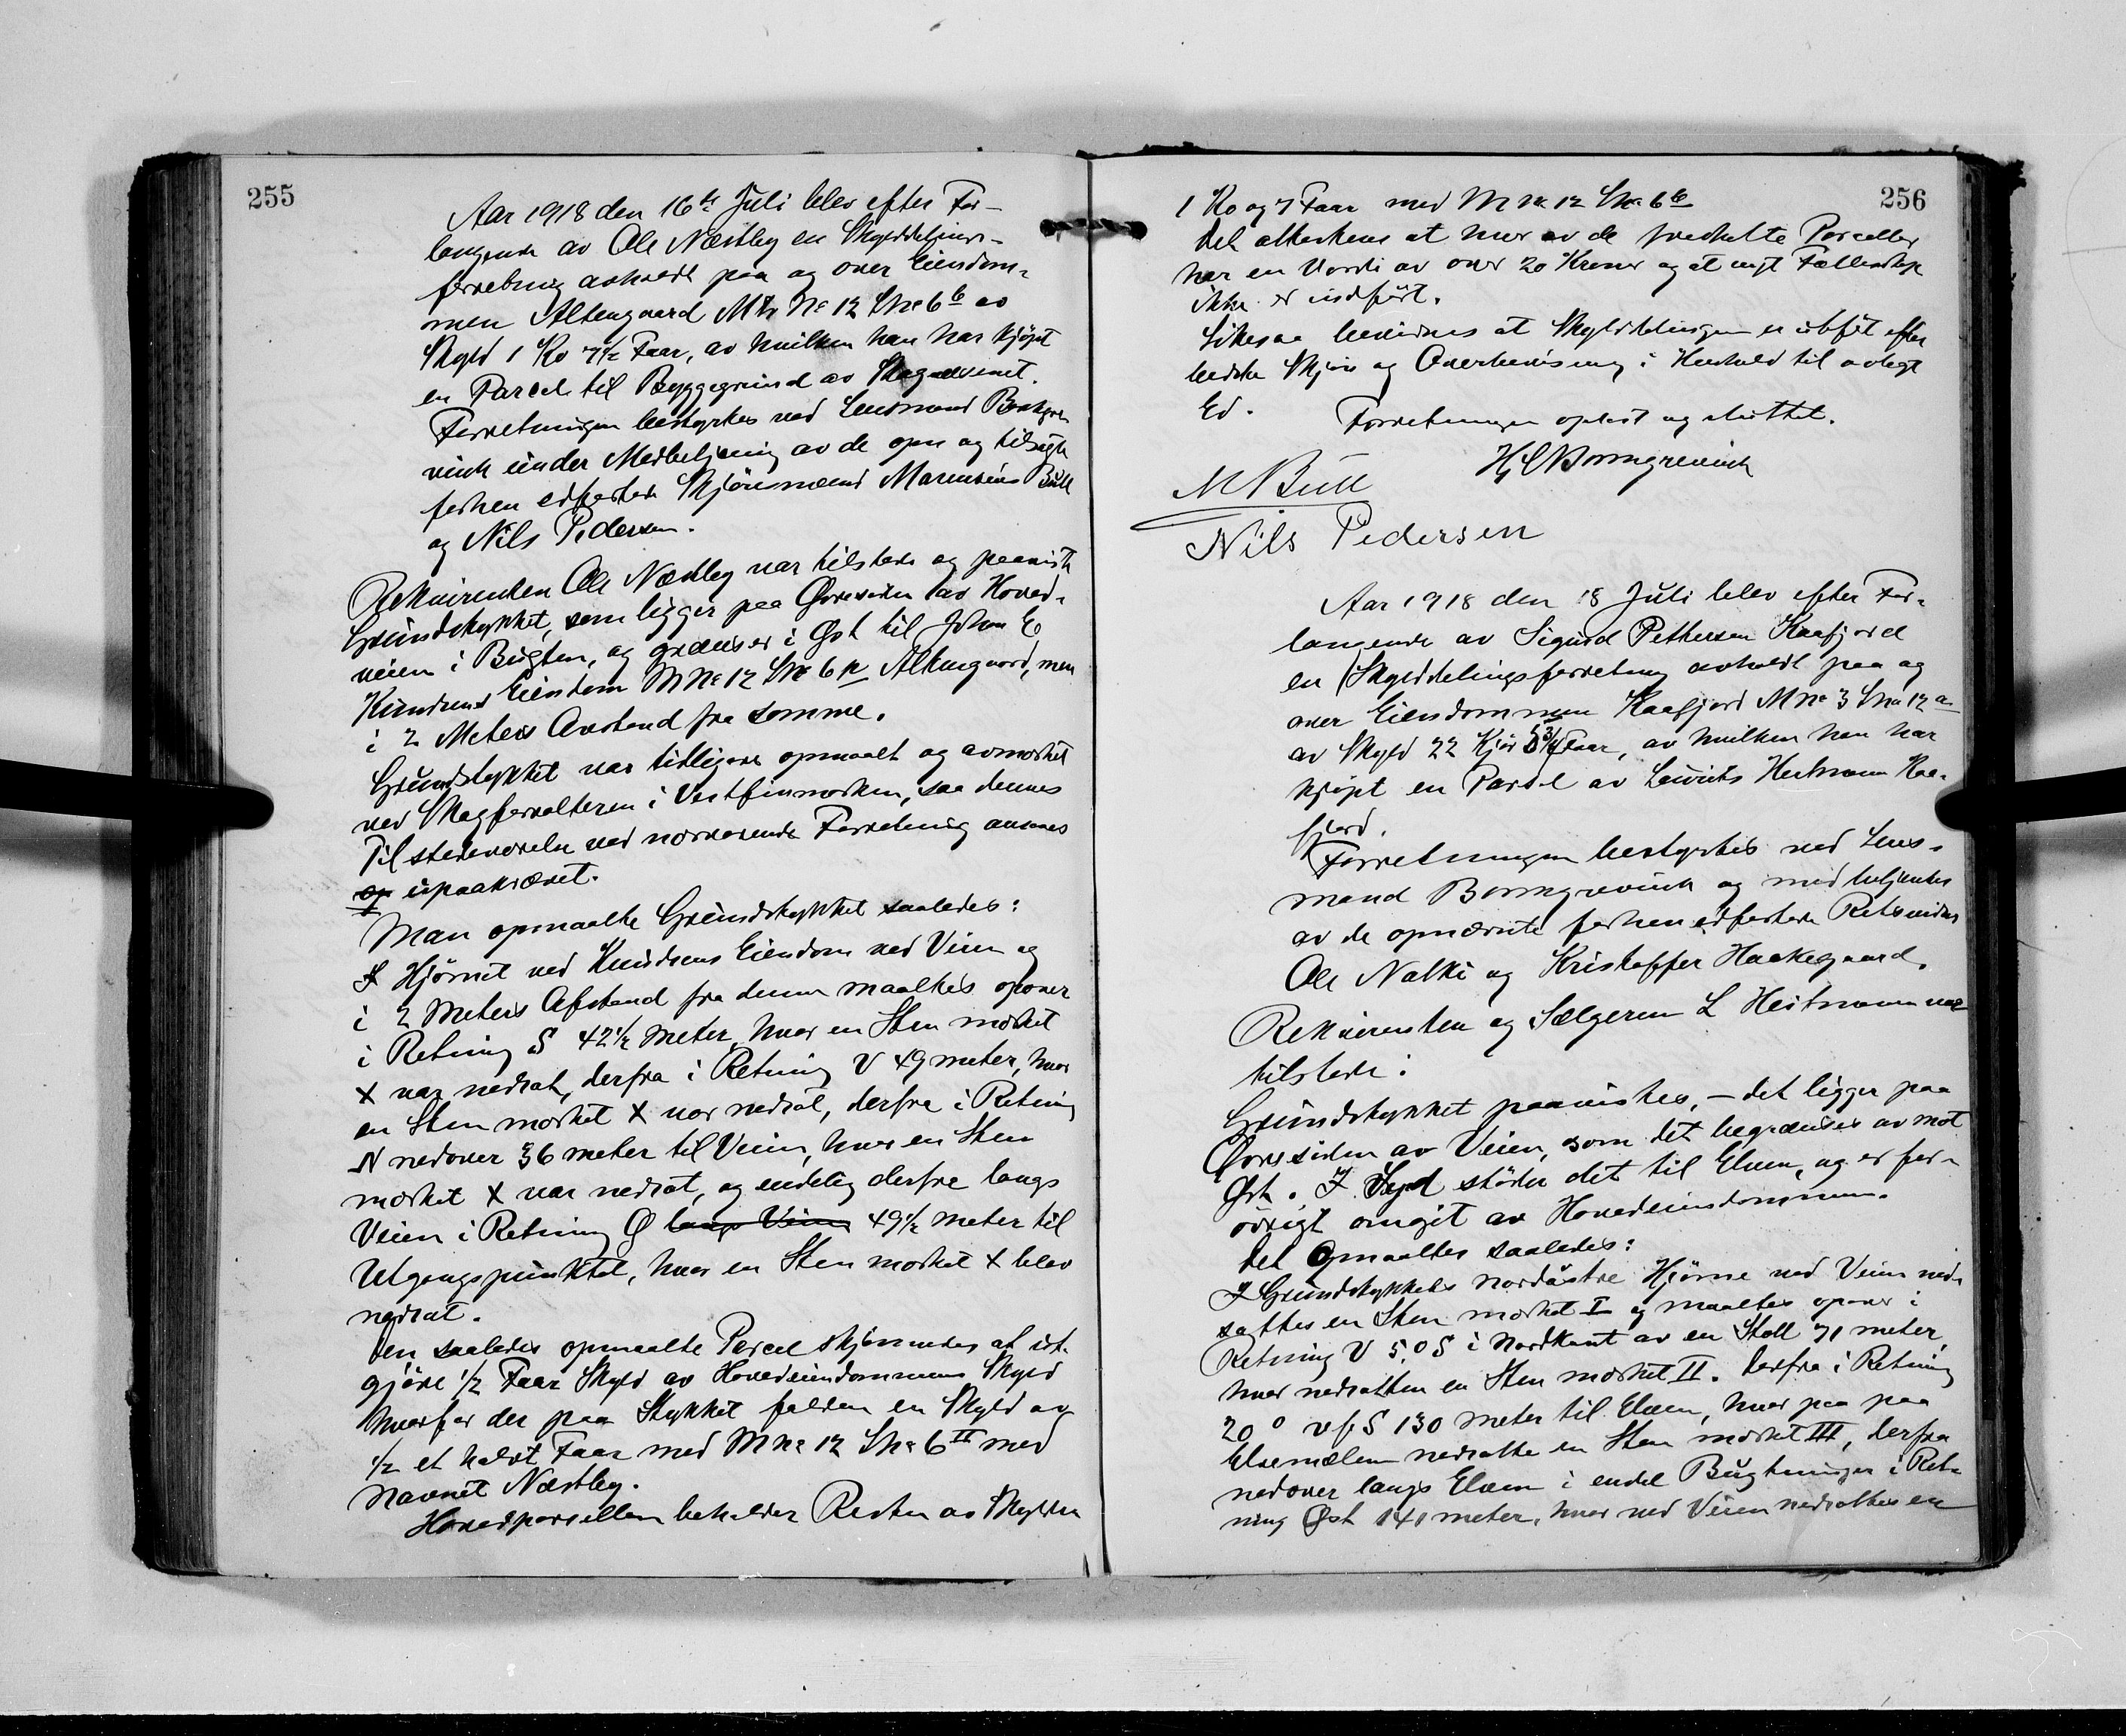 255
Aar 1918 den 16de Juli blev efter For-
langende av Ole Næstby en Skylddelings-
forretning avholdt paa og over Eiendom-
men Altengaard M No 12 Lno 6b av
Skyld 1 Ko 7½ Faar, av hvilken han har kjøpt
en Parcel til Byggegrund av Skogvæsenet.
Forretningen bestyrtes ved Lensmand Bomgre-
vink under Medbetjening av de opn og tilsagte
forhen edfæstede Skjønsmænd Marensius Bull
og Nils Pedersen.
Rekvirenten Ole Næstby var tilstede og paaviste
Grundstykket, som ligger paa Øvresiden av Hoved-
veien i Bugten, og grænser i Øst til Johan E
Knudsens Eiendom M No 12 Lno 6 p Altengaard, men
i 2 Meters Avstand fra samme.
Grundstykket var tidligere opmaalt og avmerket
ved Skogforvalteren i Vestfinmarken, saa dennes
Tilstedeværelse ved nærværende Forretning ansaaes
op upaakrævet.
Man opmaalte Grundstykket saaledes:
I Hjørnet ved Knudsens Eiendom ved Veien og
i 2 Meters Afstand fra denne maaltes opover
i Retning S 42½ meter, hvor en Sten merket
X var nedsat, derfra i Retning V 49 meter, hvor
en Sten merket X var nedsat, derfra i Retning
N nedover 36 meter til Veien, hvor en Sten
merket X var nedsat, og endelig derfra langs
Veien i Retning Ø langs Veien 49½ meter til
Utgangspunktet, hvor en Sten merket X blev
nedsat.
Den saaledes opmaalte Parcel skjønnedes at ut-
gjøre ½ Faar Skyld av Hovedeiendommens Skyld
hvorfor der paa Stykket falder en Skyld av
½ et halvt Faar med M No 12 Lno 6 II med
Navnet Næstby.
Hovedparsellen beholder Resten av Skylden
256
1 Ko og 7 Faar med M No 12 Lno 6b
Det attesteres at hver av de fraskilte Parceller
har en Værdi av over 20 Kroner og at nyt Fælleskap
ikke er indført.
Likesaa bevidnes at Skylddelingen er utført efter
bedste Skjøn og Overbevisning i Henhold til avlagt
Ed.
Forretningen oplæst og sluttet.
H Bomgrevink
M Bull
Nils Pedersen
Aar 1918 den 18 Juli blev efter For-
langende av Sigurd Pettersen Kaafjord
en Skylddelingsforretning avholdt paa og
over Eiendommen Kaafjord M No 3 Lno 12 a
av Skyld 22 Kjør 5¾ Faar, av hvilken han har
kjøpt en Parsel av Laurits Heitmann Kaa-
fjord.
Forretningen bestyrtes ved Lens-
mand Bomgrevink og med betjentes
av de opnævnte forhen edfæstede Retsvidner
Ole Nalki og Kristoffer Haakegaard.
Rekvirenten og Sælgeren L Heitmann var
tilstede.
Grundstykket paavistes, — det ligger paa
Øvresiden av Veien, som det begrænses av mot
Øst. I Syd støder det til Elven, og er for-
øvrigt omgit av Hovedeiendommen.
Det opmaaltes saaledes:
I Grundstykkets nordøstre Hjørne ved Veien ned-
sattes en Sten merket I og maaltes opover i
Retning V 5° S i Nordkant av en Stall 71 meter,
hvor nedsattes en Sten merket II. Derfra i Retning
20° v f S 130 meter til Elven, hvor paa paa
Elvemælen nedsattes en Sten merket III, derfra
nedover langs Elven i endel Bugtninger i Ret-
ning Øst 141 meter, hvor ved Veien nedsattes en